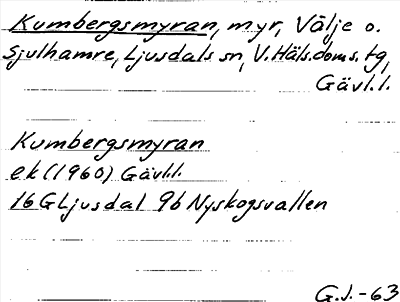 Kumbergsmyran, myr, Välje o.
Sjulhamre, Ljusdals sn, V. Häls. doms. tg,
Gävl. l.
Kumbergsmyran
ek (1960) Gävl.l.
16 G Ljusdal 9b Nyskogsvallen
G.J. -63